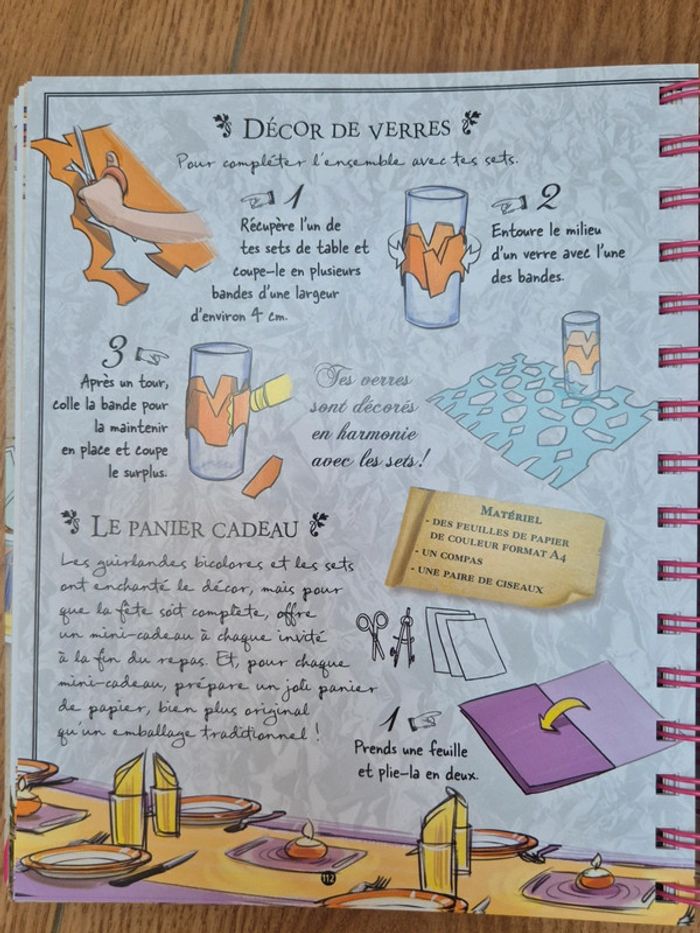 DÉCOR DE VERRES
Pour compléter l'ensemble avec tes sets.
1
Récupère l'un de
tes sets de table et
coupe-le en plusieurs
bandes d'une largeur
d'environ 4 cm.
2
Entoure le milieu
d'un verre avec l'une
des bandes.
3
Après un tour,
colle la bande pour
la maintenir
en place et coupe
le surplus.
Tes verres
sont décorés
en harmonie
avec les sets !
LE PANIER CADEAU
Les guirlandes bicolores et les sets
ont enchanté le décor, mais pour
que la fête soit complète, offre
un mini-cadeau à chaque invité
à la fin du repas. Et, pour chaque
mini-cadeau, prépare un joli panier
de papier, bien plus original
qu'un emballage traditionnel !
MATÉRIEL
- DES FEUILLES DE PAPIER
DE COULEUR FORMAT A4
- UN COMPAS
- UNE PAIRE DE CISEAUX
1
Prends une feuille
et plie-la en deux.
112